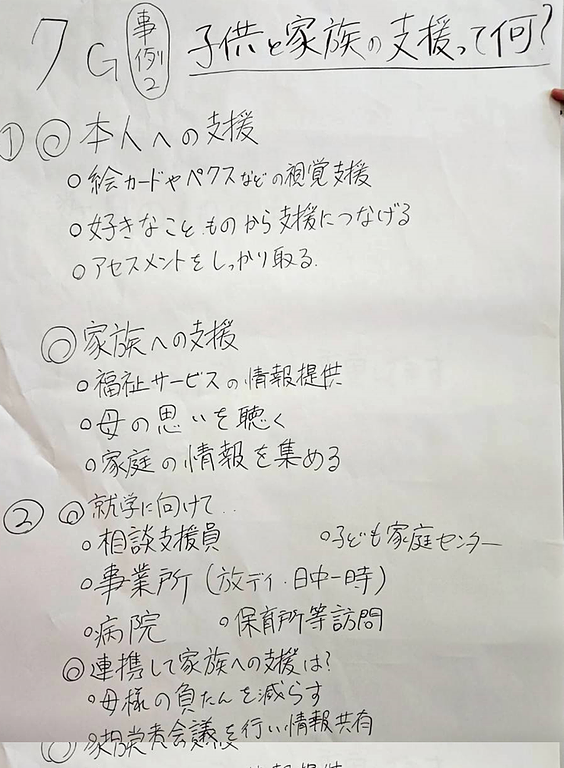 7G 事例2 子供と家族の支援って何?
① ◎ 本人への支援
○絵カードやペクスなどの視覚支援
○好きなこと.ものから支援につなげる
○アセスメントをしっかり取る.
◎家族への支援
○福祉サービスの情報提供
○母の思いを聴く
○家庭の情報を集める
② ◎就学に向けて..
○相談支援員 ○子ども家庭センター
○事業所(放デイ・日中一時)
○病院 ○保育所等訪問
◎連携して家族への支援は?
○母様の負たんを減らす
会議を行い情報共有